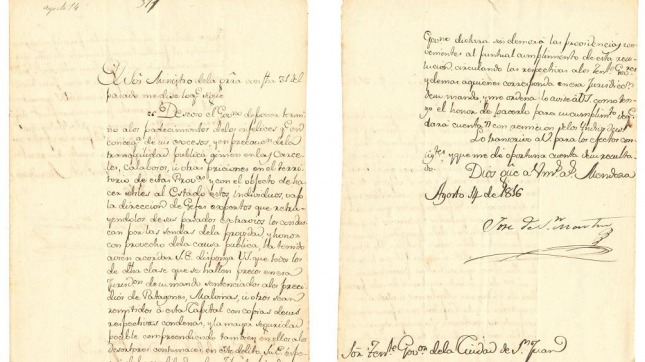 agosto 14
El Señ Ministro de la Grra con fha 31 del
pasado me dise lo q.e sigue
Deseoso el Gov.no de poner termi
no alos padecimientos delos infelices q.e en
conseq.a de sus procesos, y en precaucion dela
tranquilidad publica gimen en las Carce
les, Calabozos, ú otras priciones en el terri
torio de estas Prov.s y con el objecto de ha
cer utiles al Estado estos individuos, baxo
la direccion de Gefes expertos que retra
yendolos de sus pasados extravios los condus
can por las sendas de la probidad y honor
con provecho dela causa publica, Ha tenido
a bien acordar S.E. disponga V.S. que todos los
de dha clase que se hallen presos en esa
Jurisdon de su mando sentenciados alos presi
dios de Patagones, Malvinas, ú otros sean
remitidos á esta Capital con copias de sus
respectivas condenas, y la mayor seguridad
posible comprendiendo tambien en ellos alos
desertores continuaces en este delito. Su Exa
Espera dictará sin demora las providencias con
cernientes al puntual cumplimiento de esta reso
lucion circulando las respectivas alos Ten.tes Gov.res
y demas aquienes corresponda en esa Jurisdic.on
de su mando, y me ordena lo avise á V.S. como ten
go el honor de hacerlo para su cumplimto de q.e
dará cuenta
con remision de los Individuos
Lo transcrivo á V. para los efectos con
sig.tes y que me dé oportuna cuenta de su resulta
do.
Dios gue a V. m.s a.s Mendoza
Agosto 14 de 1816
Jose de S.n Martin
Sór Ten.te Gov.or dela Ciudad de S.n Juan